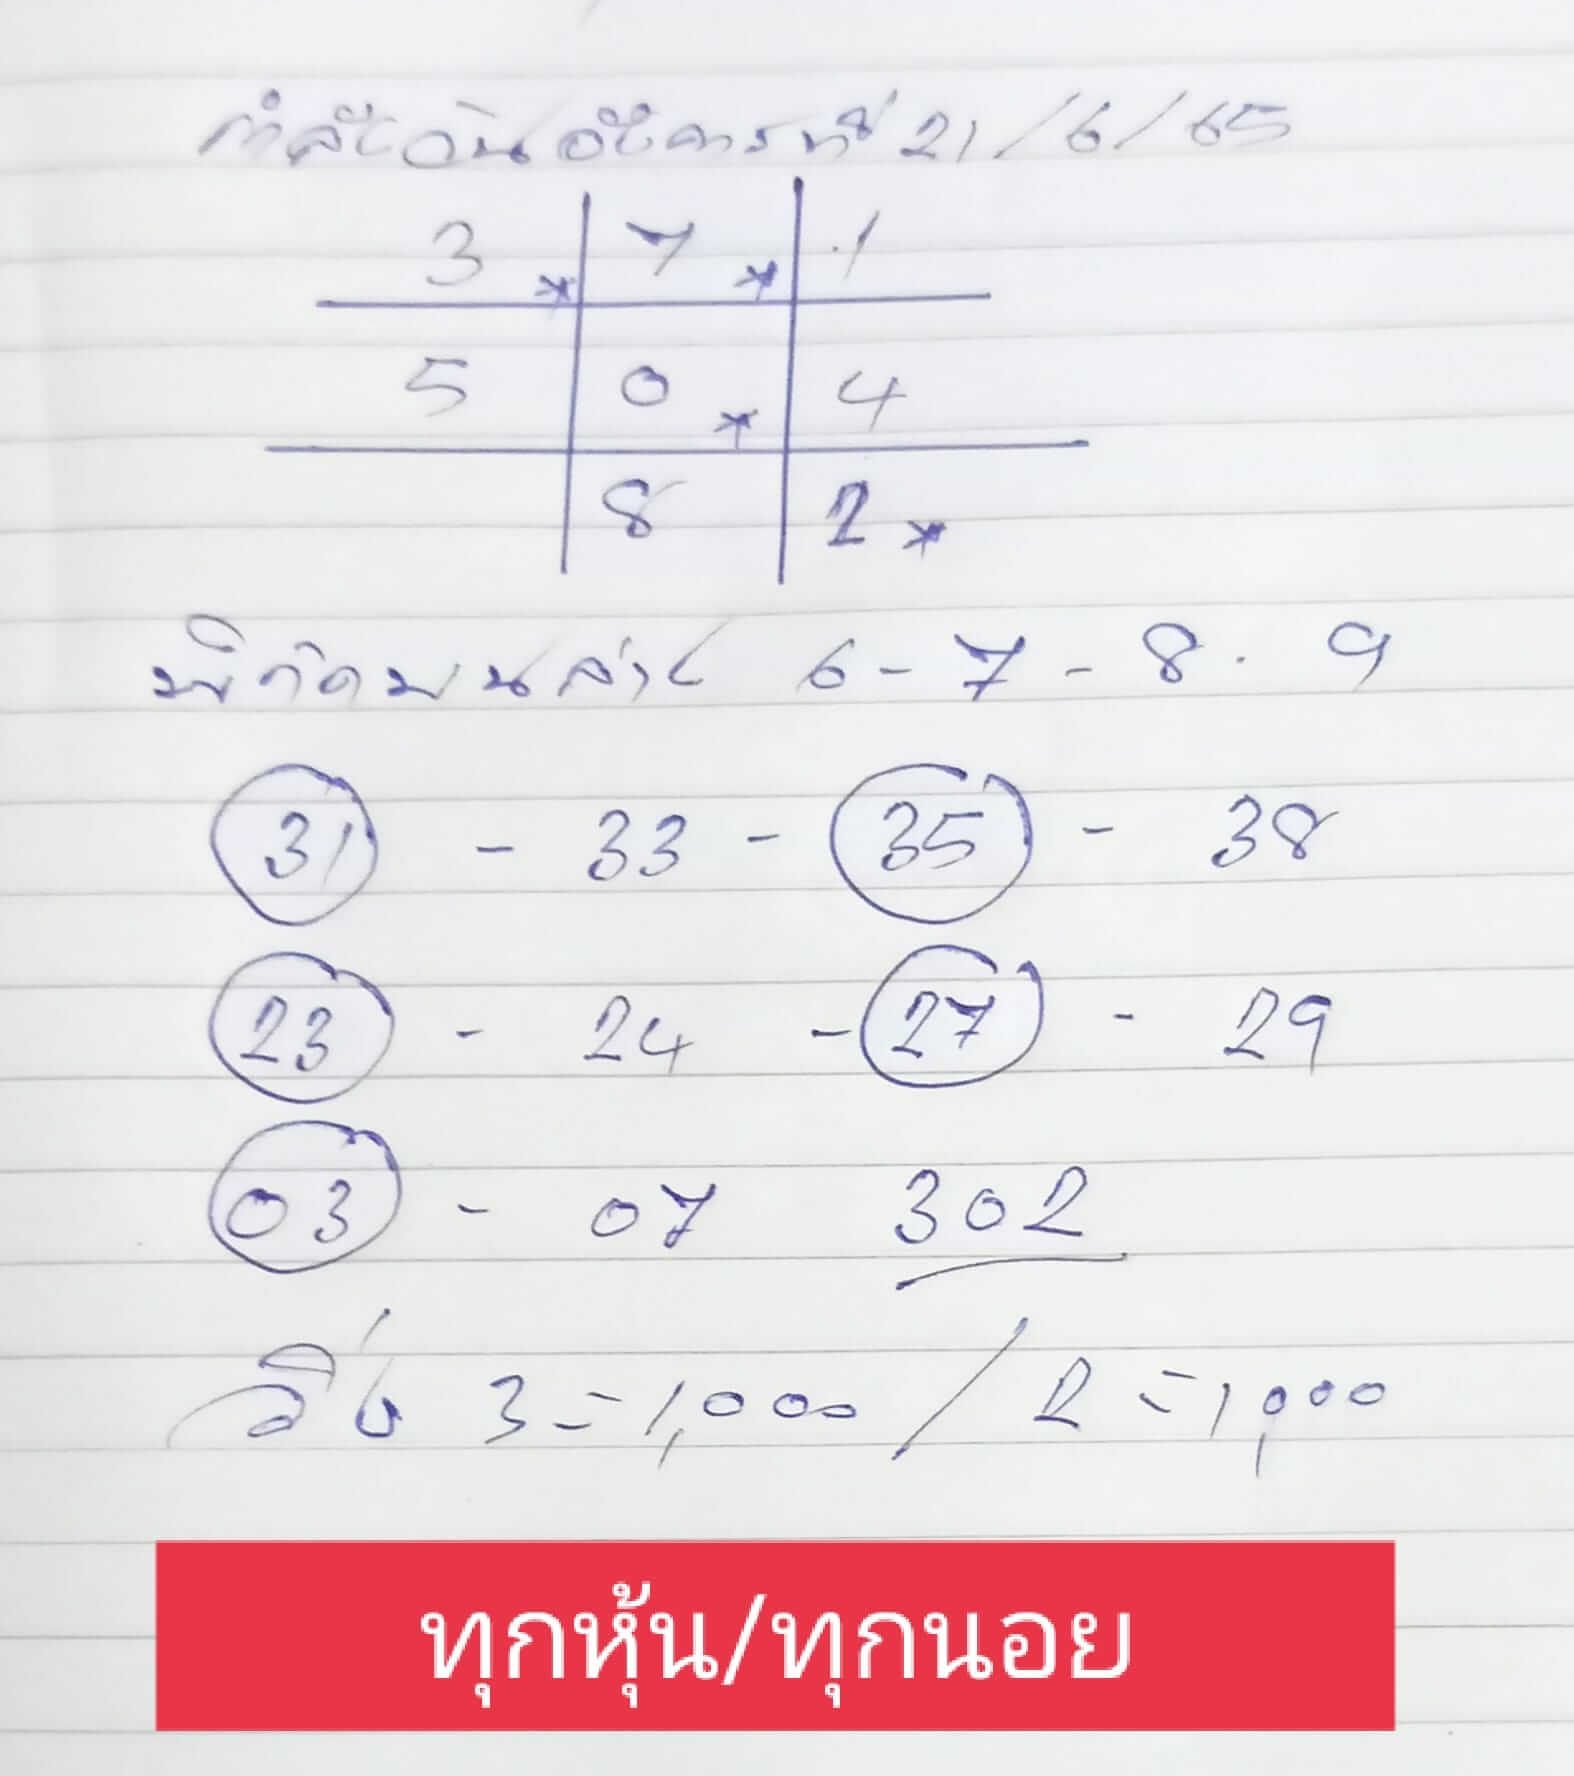 กำลังวันอังคารที่ 21/6/65
3 * 7 * 1
5 0 * 4
8 2 *
พิกัดบนล่าง 6 - 7 - 8 . 9
31 - 33 - 35 - 38
23 - 24 - 27 - 29
03 - 07 302
วิ่ง 3 = 1,000 / 2 = 1,000
ทุกหุ้น/ทุกนอย